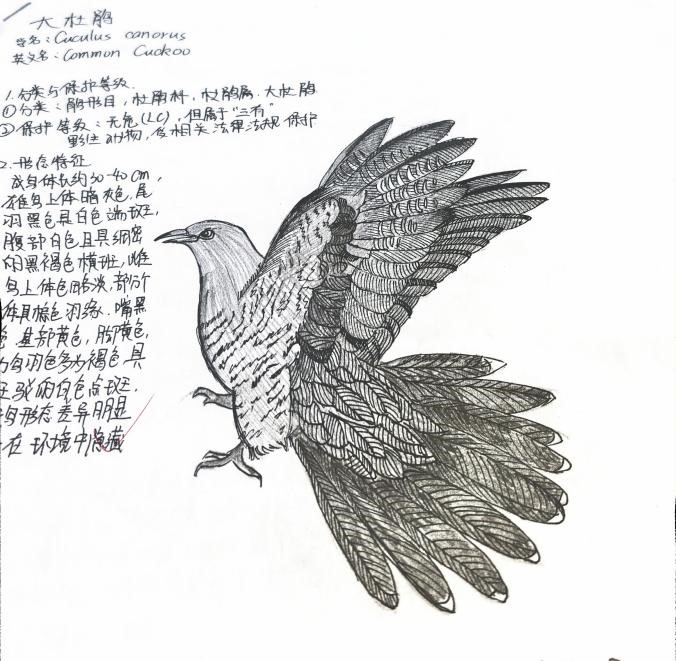 大杜鹃
学名：Cuculus canorus
英文名：Common Cuckoo
1.分类与保护等级
①分类：鹃形目，杜鹃科，杜鹃属，大杜鹃
②保护等级：无危(LC)，但属于"三有"
野生动物，受相关法律法规保护
2.形态特征
成鸟体长约30-40cm，
雄鸟上体暗灰色，尾
羽黑色具白色端斑，
腹部白色且具细密
的黑褐色横斑，雌
鸟上体色略淡，部分
体具棕色羽缘，嘴黑
色 基部黄色，脚黄色，
鸟羽色多为褐色，具
的白色点斑，
鸟形态差异明显
在环境中隐藏